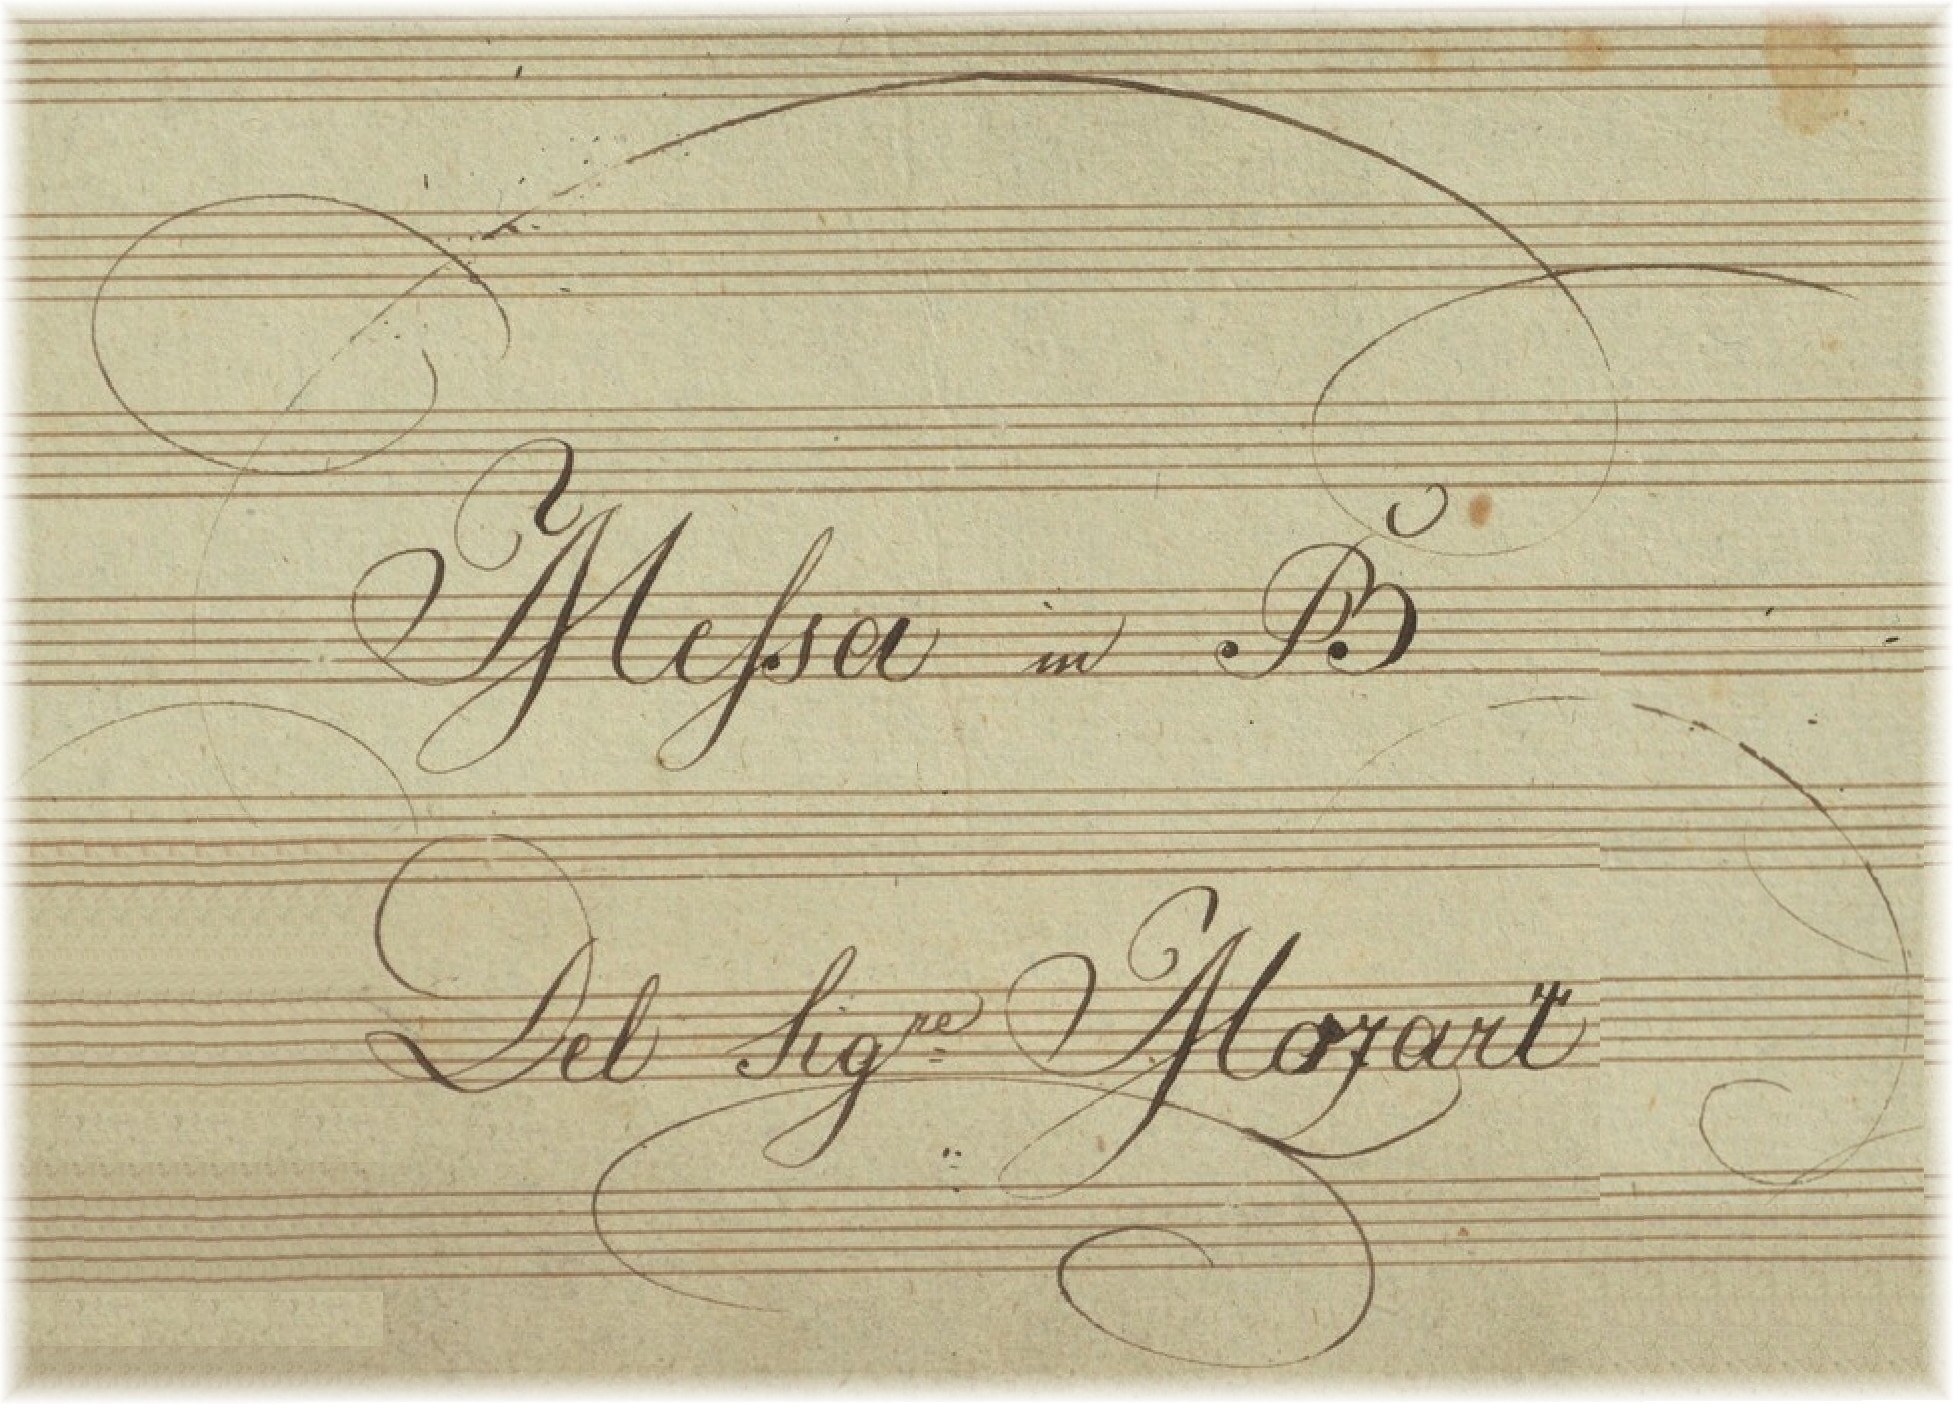 Messa in B
Del Sig.re Mozart